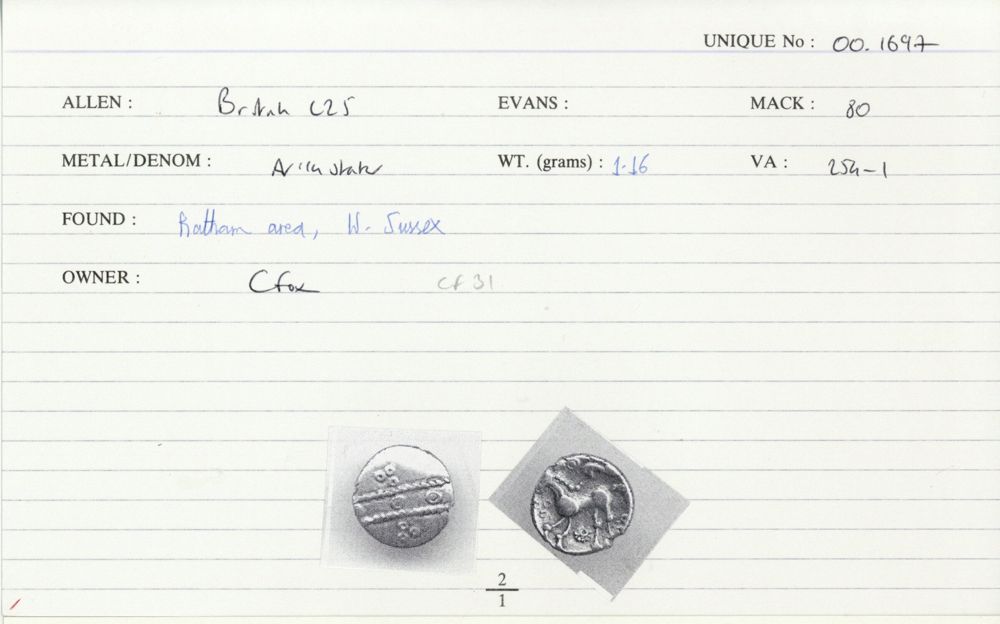 UNIQUE No : 00.1697
ALLEN : British L25 EVANS : MACK : 80
METAL/DENOM : AV 1/4 stater WT. (grams) : 1.16 VA : 254-1
FOUND : Ratham area, W. Sussex
OWNER : C Fox CF 31
2
1